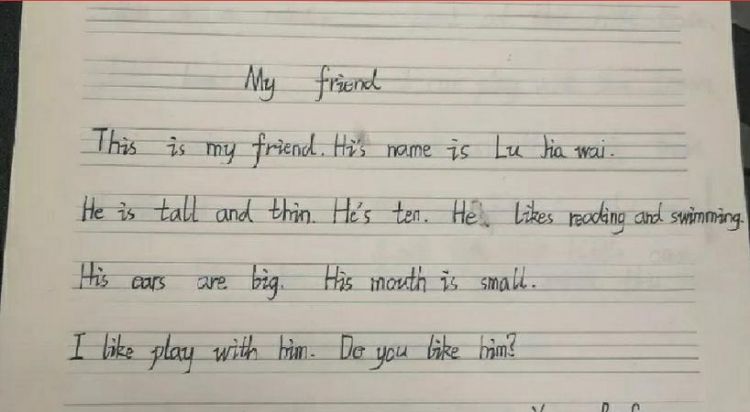 My friend
This is my friend. Hi's name is Lu Jia wai.
He is tall and thin. He's ten. He likes reading and swimming.
His ears are big. His mouth is small.
I like play with him. Do you like him?